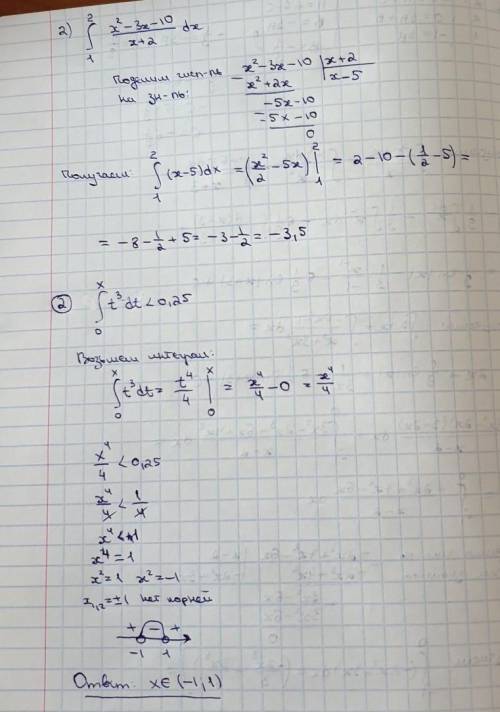 2) ∫₁² (x² - 3x - 10)/(x + 2) dx
Поделим числ-ль на зн-ль:
x² - 3x - 10 | x + 2
x² + 2x | x - 5
-5x - 10
-5x - 10
0
Получаем: ∫₁² (x - 5)dx = (x²/2 - 5x) |₁² = 2 - 10 - (1/2 - 5) =
= -8 - 1/2 + 5 = -3 - 1/2 = -3,5
② ∫₀ˣ t³ dt < 0,25
Возьмем интеграл:
∫₀ˣ t³ dt = t⁴/4 |₀ˣ = x⁴/4 - 0 = x⁴/4
x⁴/4 < 0,25
x⁴/4 < 1/4
x⁴ < 1
x⁴ = 1
x² = 1 x² = -1
x₁,₂ = ±1 нет корней
+ - +
-1 1
Ответ: x ∈ (-1, 1)